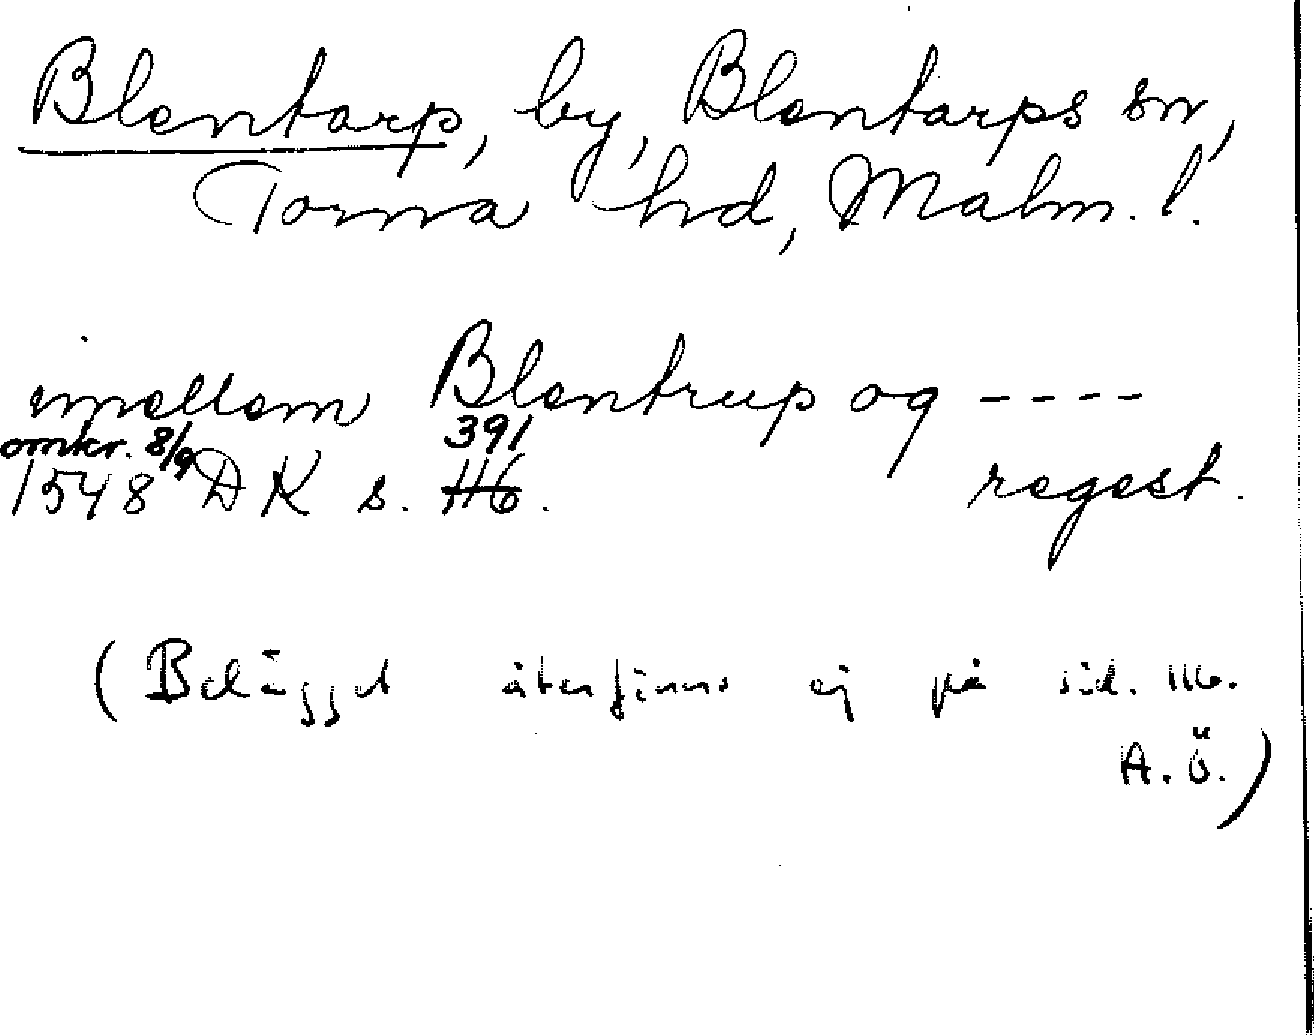 Blentarp, by, Blentarps sn,
Torna hd, Malm. l.
imellem Blentrup og ----
omkr. 8/9 391
1548 DK s. 116. regest.
(Belägget återfinns ej på sid. 116.
A.Ö.)